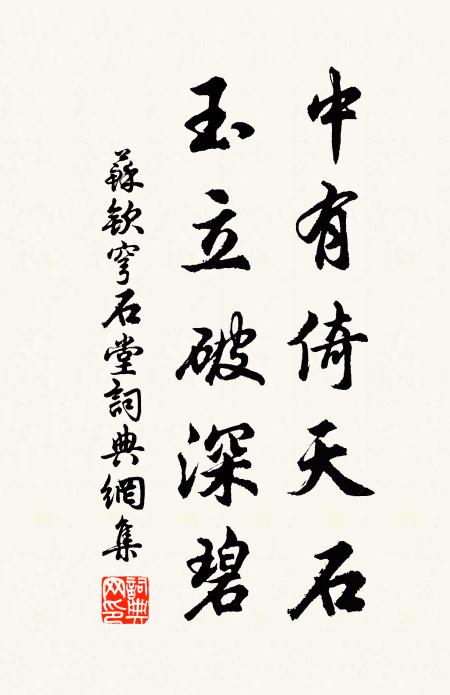 中有倚天石
玉立破深碧
蘇欽穹石堂詞典網集
詞典
网印